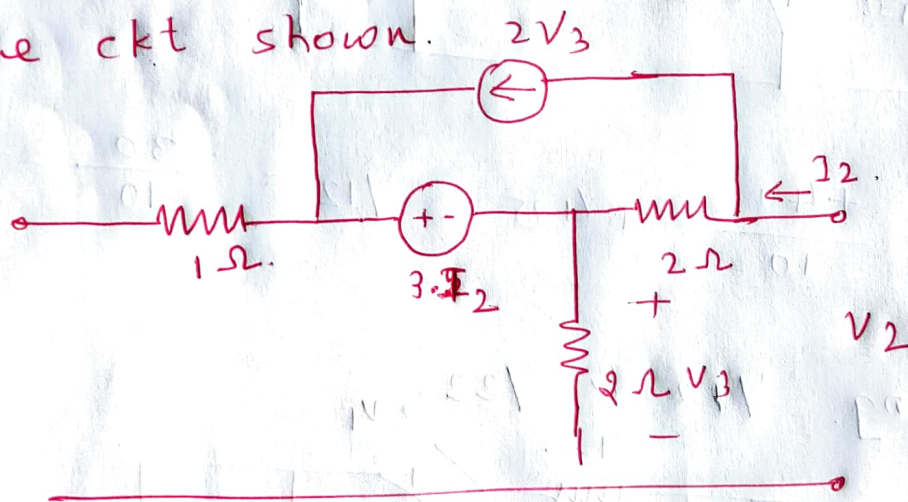 e ckt shown.
2V3
I2.
+ -
1Ω.
3.I2
2Ω
+
V2
2Ω V3
-